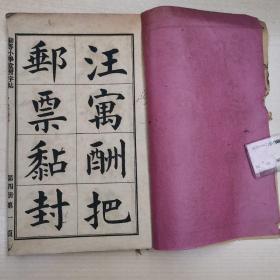 汪寓酬把
郵票黏封
第四冊第一頁